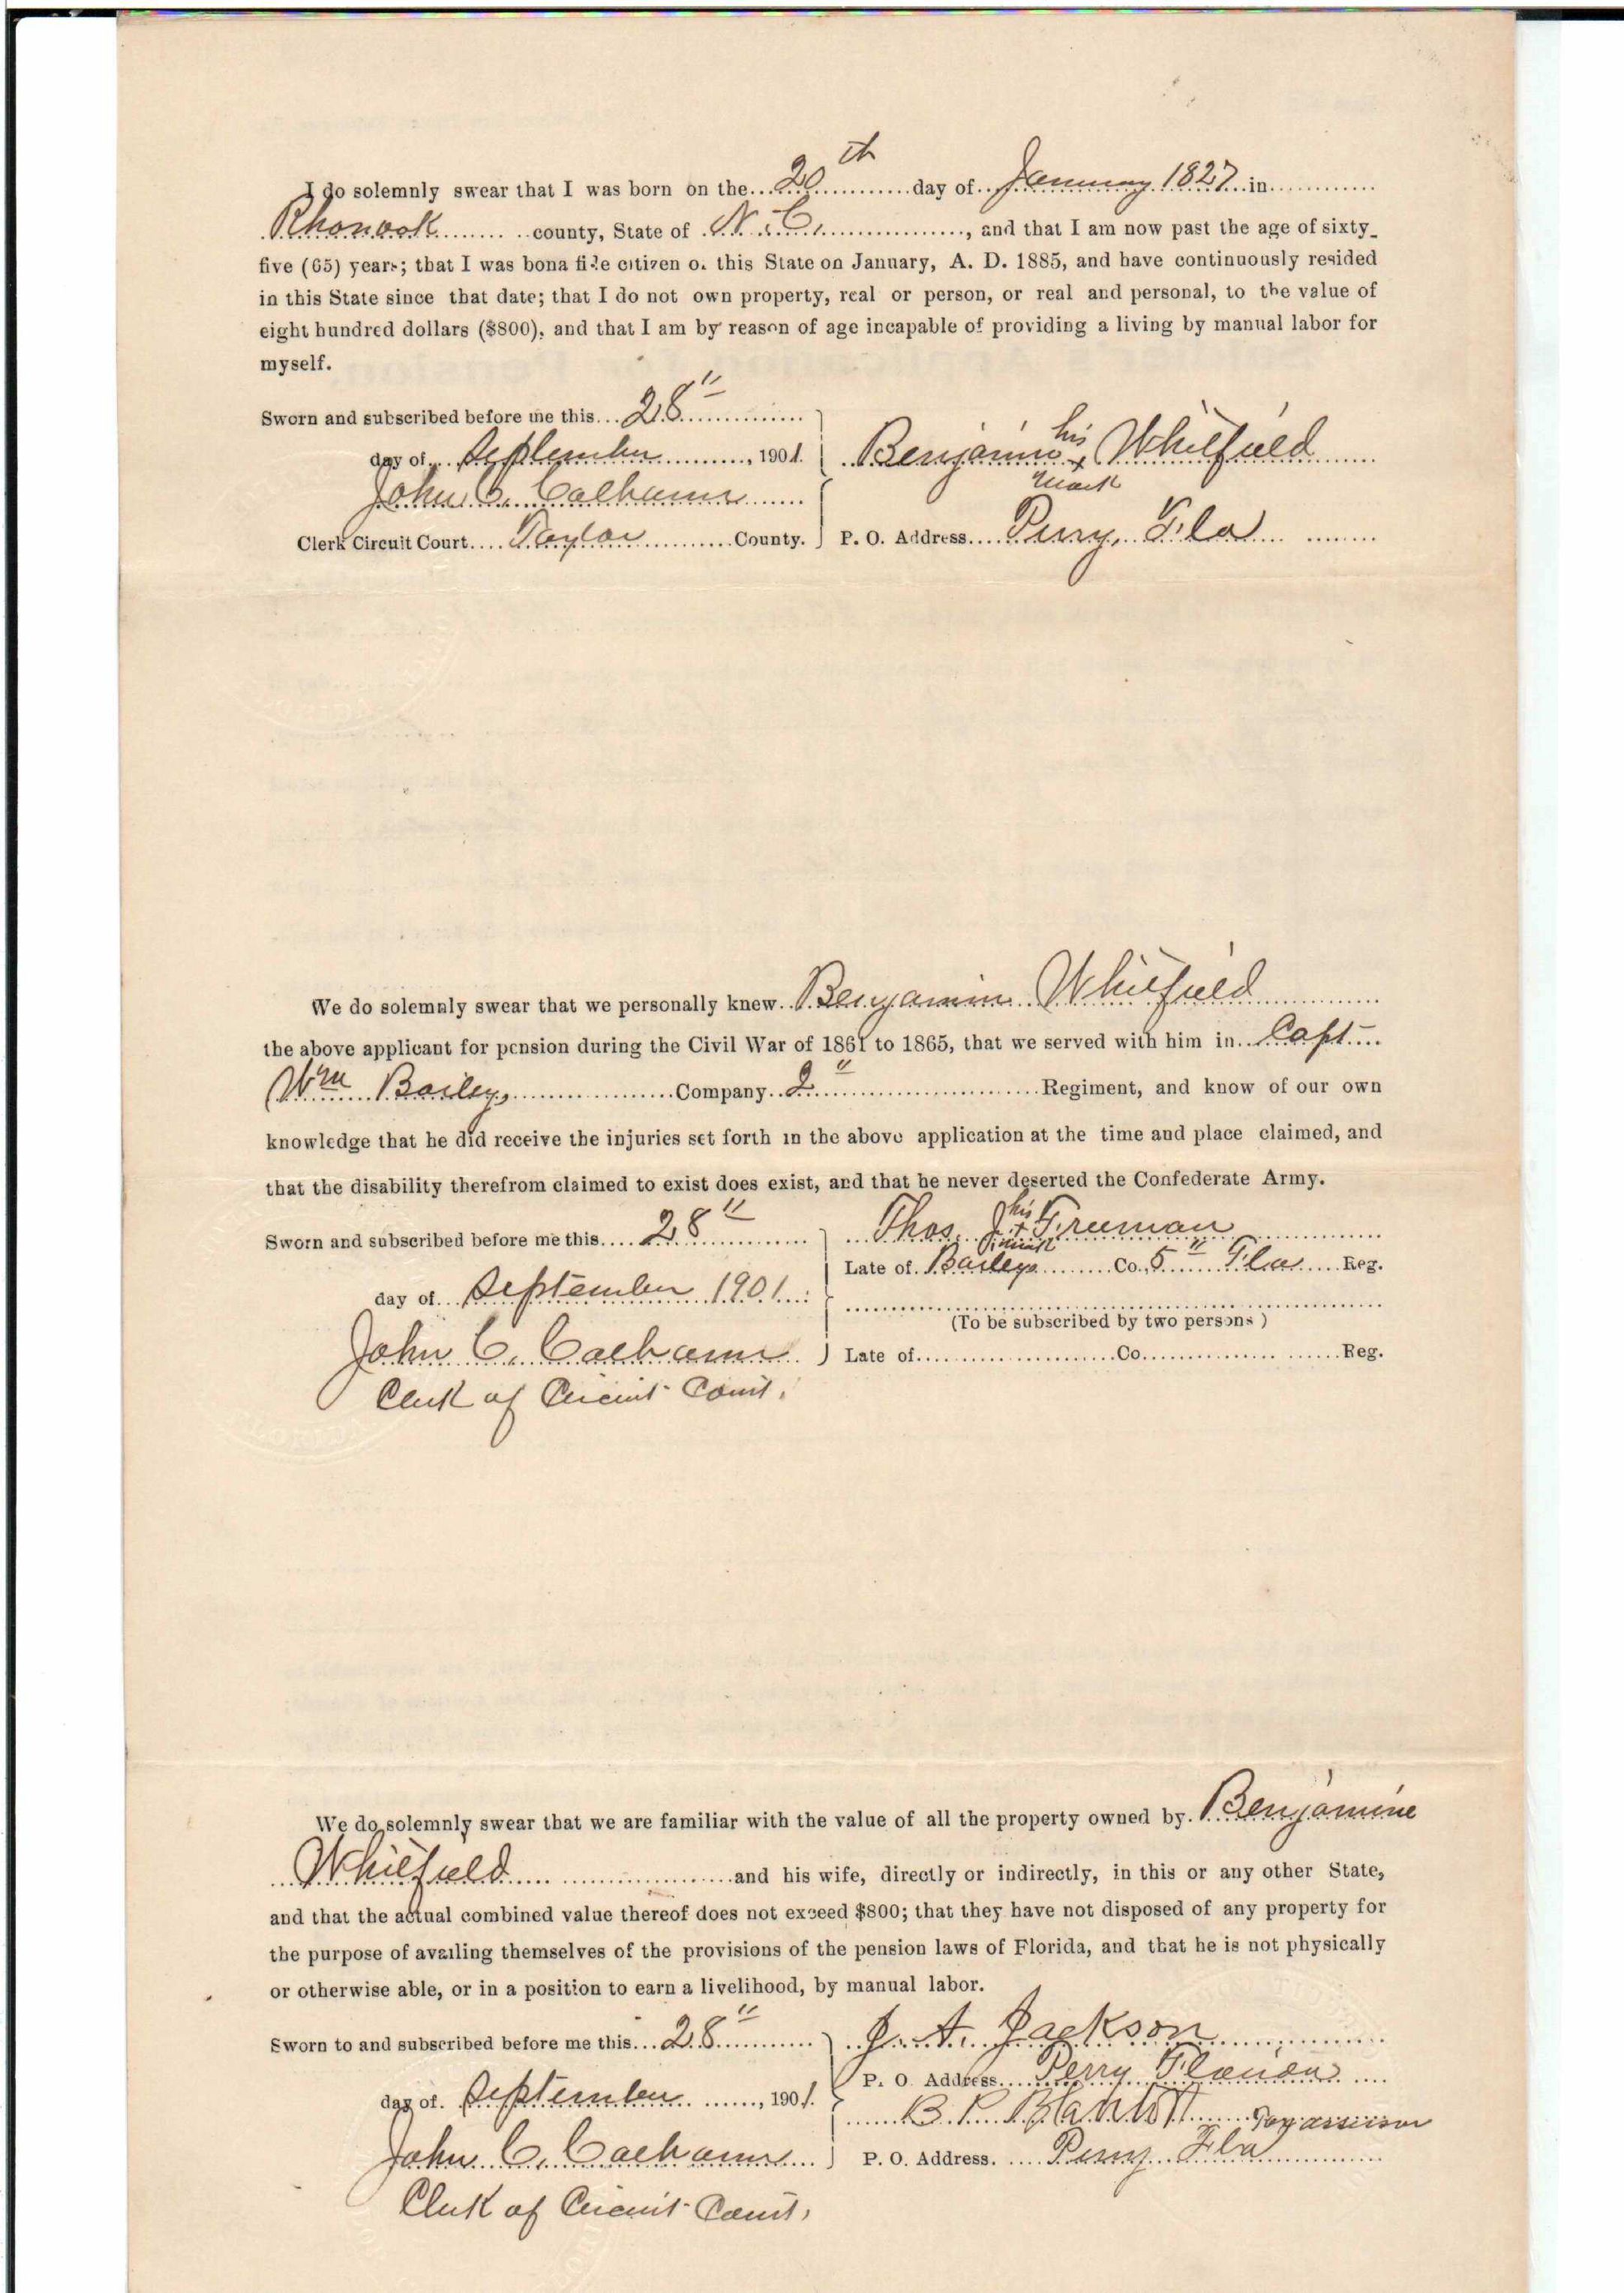 I do solemnly swear that I was born on the 20th day of January 1827 in
Rhonook county, State of N. C., and that I am now past the age of sixty-
five (65) years; that I was bona fide citizen of this State on January, A. D. 1885, and have continuously resided
in this State since that date; that I do not own property, real or person, or real and personal, to the value of
eight hundred dollars ($800), and that I am by reason of age incapable of providing a living by manual labor for
myself.
Sworn and subscribed before me this 28"
day of September, 1901.
John C. Calhoun
Clerk Circuit Court Taylor County.
Benjamin his x mark Whitfield
P. O. Address Perry, Fla
We do solemnly swear that we personally knew Benjamin Whitfield
the above applicant for pension during the Civil War of 1861 to 1865, that we served with him in Capt
Wm Bailey, Company 2" Regiment, and know of our own
knowledge that he did receive the injuries set forth in the above application at the time and place claimed, and
that the disability therefrom claimed to exist does exist, and that he never deserted the Confederate Army.
Sworn and subscribed before me this 28"
day of September 1901
John C. Calhoun
Clerk of Circuit Court.
Thos. J. his x mark Freeman
Late of Baileys Co. 5" Fla Reg.
(To be subscribed by two persons)
Late of Co. Reg.
We do solemnly swear that we are familiar with the value of all the property owned by Benjamine
Whitfield and his wife, directly or indirectly, in this or any other State,
and that the actual combined value thereof does not exceed $800; that they have not disposed of any property for
the purpose of availing themselves of the provisions of the pension laws of Florida, and that he is not physically
or otherwise able, or in a position to earn a livelihood, by manual labor.
Sworn to and subscribed before me this 28"
day of September, 1901.
John C. Calhoun
Clerk of Circuit Court.
J. A. Jackson
P. O. Address Perry Florida
B. P. Blanton Tax assessor
P. O. Address. Perry Fla